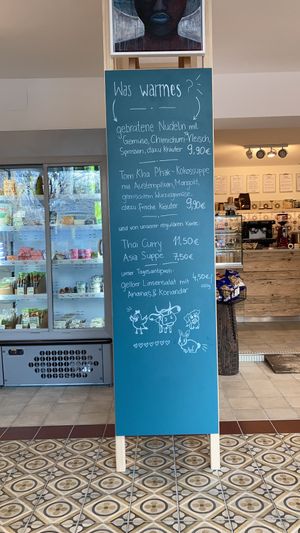 Was warmes?
gebratene Nudeln mit
Gemüse, Chimichurri-Fleisch,
Sprossen, dazu Kräuter 9,90€
Tom Kha Phak - Kokossuppe
mit Austernpilzen, Mangold,
gemischtem Wurzelgemüse,
dazu frische Kräuter 9,90€
und von unserer regulären Karte:
Thai Curry 11,50€
Asia Suppe 7,50€
unser Tagesantipasti:
gelber Linsensalat mit 4,50€
Ananas & Koriander